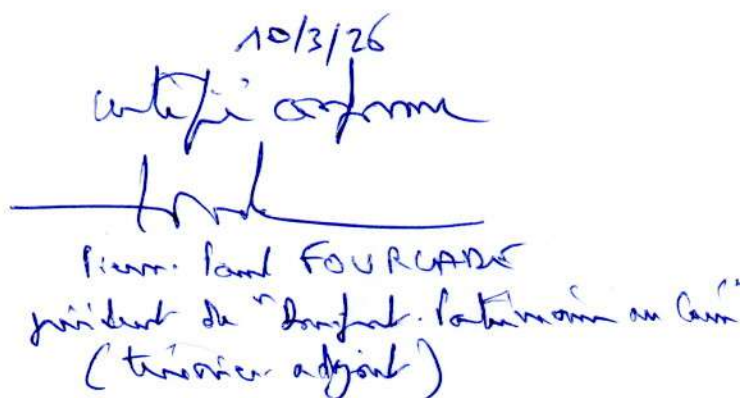 10/3/26
certifié conforme
Pierre-Paul FOURCADE
président de "Domfront-Patrimoine au
(trésorier adjoint)